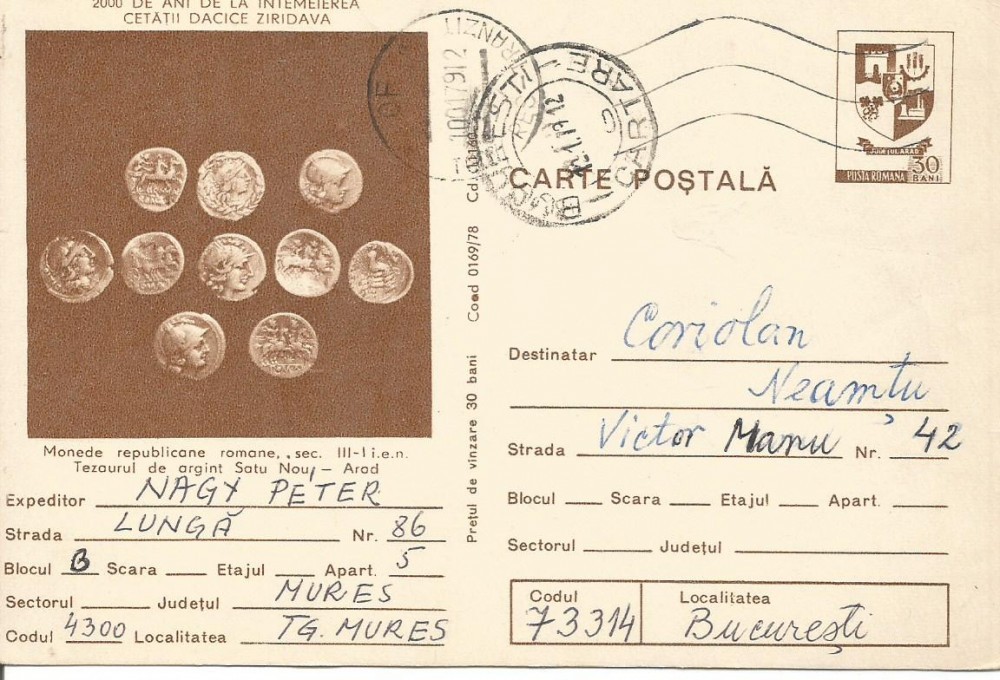 2000 DE ANI DE LA INTEMEIEREA
CETĂȚII DACICE ZIRIDAVA
Monede republicane romane, sec. III-I i.e.n.
Tezaurul de argint Satu Nou - Arad
Expeditor NAGY PETER
Strada LUNGĂ Nr. 86
Blocul B Scara Etajul Apart. 5
Sectorul Județul MURES
Codul 4300 Localitatea TG. MURES
Prețul de vînzare 30 bani Cod 0169/78
TRANZIT
BUCUREȘTI
CARTARE
CARTE POȘTALĂ
JUDEȚUL ARAD
POSTA ROMANA 30 BANI
Destinatar Coriolan
Neamțu
Strada Victor Manu Nr. 42
Blocul Scara Etajul Apart.
Sectorul Județul
Codul Localitatea
73314 București